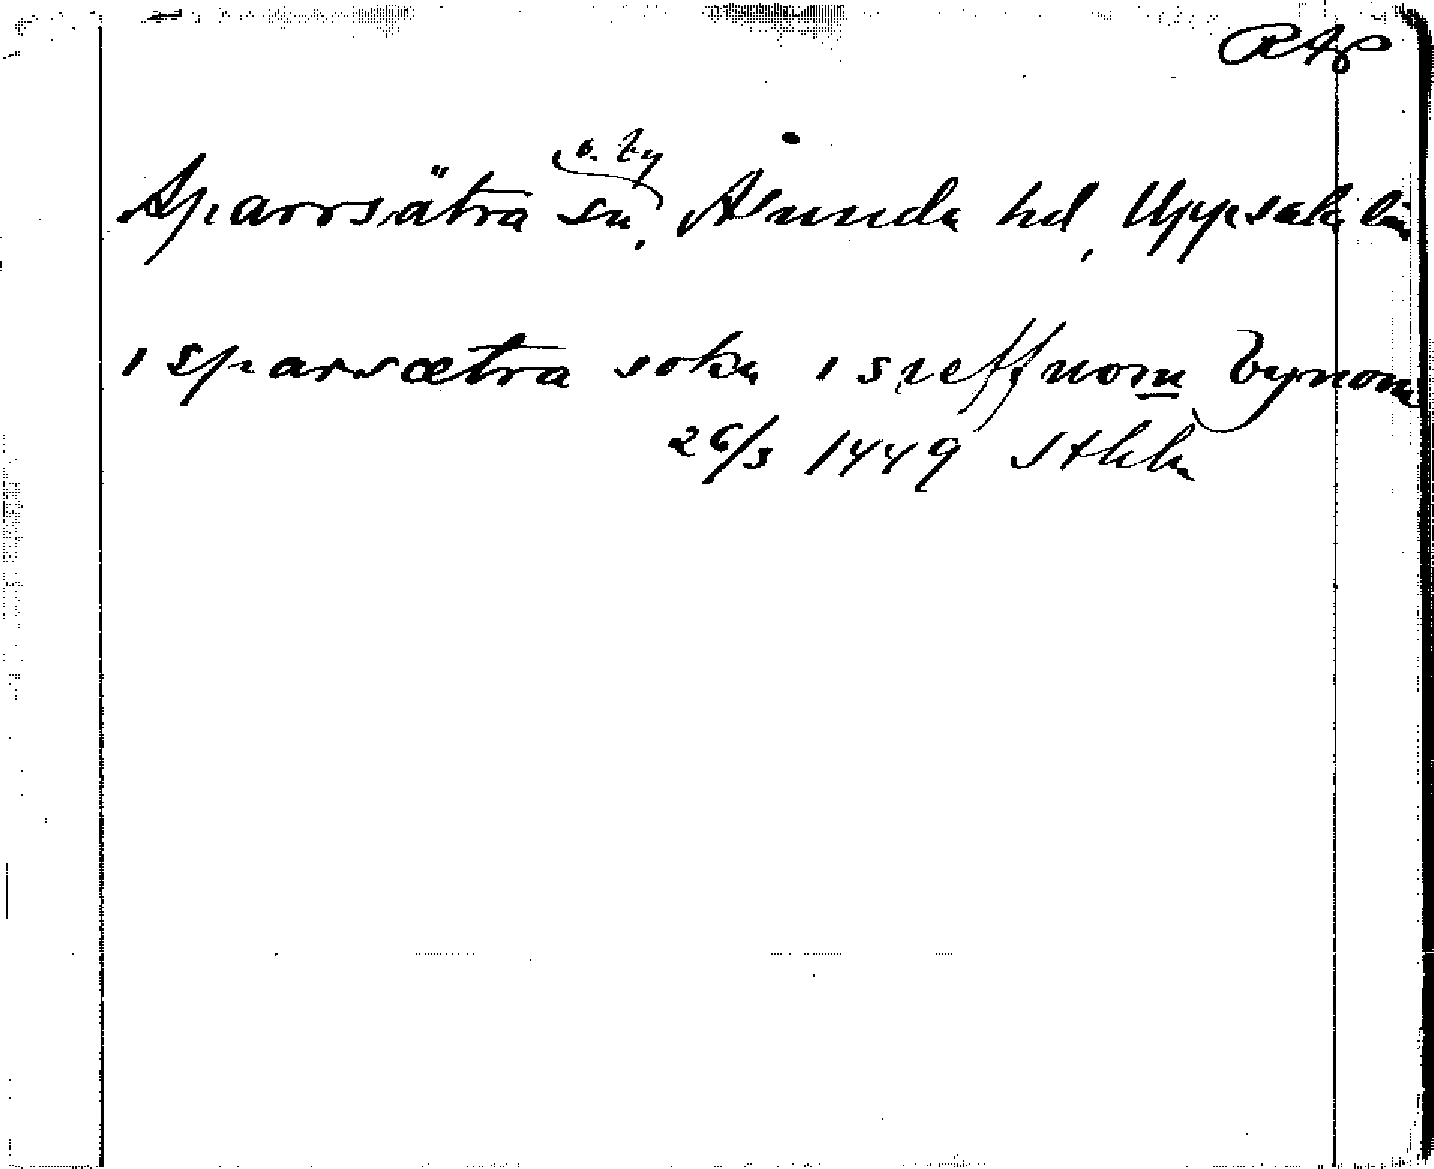 RAp
o. by
Sparrsätra sn, Åsunda hd, Uppsala län
i sparsætra sokn i sneffnom bynom
26/3 1449 Sthlm